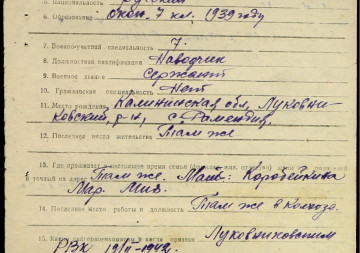 5. Национальность русский
6. Образование окон. 7 кл. 1939 году
7. Военно-учетная специальность 7.
8. Должностная квалификация Наводчик
9. Военное звание Сержант
10. Гражданская специальность Нет
11. Место рождения Калининская обл, Луковни-
ковский, р-н, с. Раменье,
12. Последнее место жительства Там же
13. Где проживает в настоящее время семья
и точный их адрес Там же. Мать: Коробейкина
Мар. Мих.
14. Последнее место работы и должность Там же в Колхозе.
15. Каким райвоенкоматом и когда призван Луковниковским
РВК 19/II-1942.